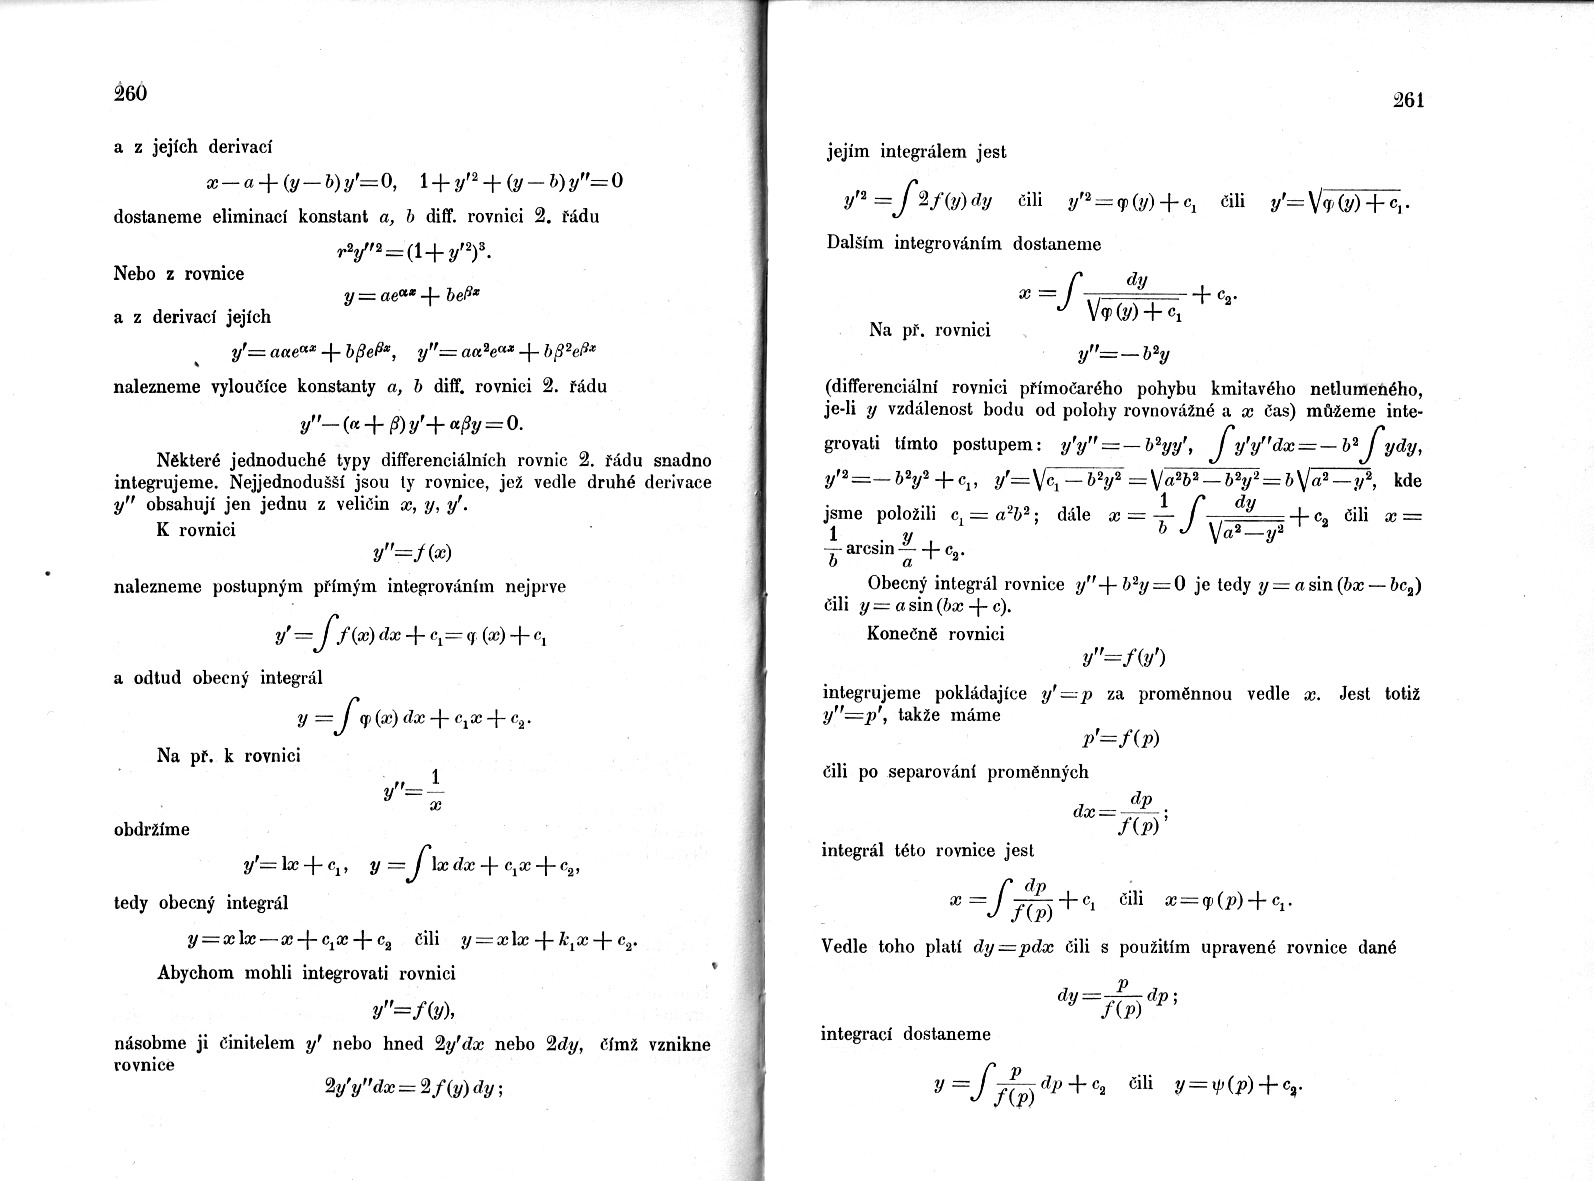 260
a z jejích derivací
x — a + (y — b) y′=0, 1 + y′² + (y — b) y″=0
dostaneme eliminací konstant a, b diff. rovnici 2. řádu
r²y″²=(1+y′²)³.
Nebo z rovnice
y = ae^{αx} + be^{βx}
a z derivací jejích
y′= aαe^{αx} + bβe^{βx}, y″= aα²e^{αx} + bβ²e^{βx}
nalezneme vyloučíce konstanty a, b diff. rovnici 2. řádu
y″—(α + β) y′+ αβy = 0.
Některé jednoduché typy differenciálních rovnic 2. řádu snadno
integrujeme. Nejjednodušší jsou ty rovnice, jež vedle druhé derivace
y″ obsahují jen jednu z veličin x, y, y′.
K rovnici
y″=f(x)
nalezneme postupným přímým integrováním nejprve
y′ = ∫ f(x) dx + c₁ = φ (x) + c₁
a odtud obecný integrál
y = ∫ φ (x) dx + c₁x + c₂.
Na př. k rovnici
y″= 1/x
obdržíme
y′= lx + c₁, y = ∫ lx dx + c₁x + c₂,
tedy obecný integrál
y = x lx — x + c₁x + c₂ čili y = x lx + k₁x + c₂.
Abychom mohli integrovati rovnici
y″=f(y),
násobme ji činitelem y′ nebo hned 2y′dx nebo 2dy, čímž vznikne
rovnice
2y′y″dx = 2f(y) dy ;
261
jejím integrálem jest
y′² = ∫ 2f(y) dy čili y′² = φ (y) + c₁ čili y′= √(φ (y) + c₁).
Dalším integrováním dostaneme
x = ∫ dy/√(φ (y) + c₁) + c₂.
Na př. rovnici
y″= — b²y
(differenciální rovnici přímočarého pohybu kmitavého netlumeného,
je-li y vzdálenost bodu od polohy rovnovážné a x čas) můžeme inte-
grovati tímto postupem: y′y″ = — b²yy′, ∫ y′y″dx = — b² ∫ ydy,
y′² = — b²y² + c₁, y′= √(c₁ — b²y²) = √(a²b² — b²y²) = b √(a² — y²), kde
jsme položili c₁ = a²b² ; dále x = 1/b ∫ dy/√(a² — y²) + c₂ čili x =
1/b arcsin y/a + c₂.
Obecný integrál rovnice y″+ b²y = 0 je tedy y = a sin (bx — bc₂)
čili y = a sin (bx + c).
Konečně rovnici
y″=f(y′)
integrujeme pokládajíce y′ = p za proměnnou vedle x. Jest totiž
y″=p′, takže máme
p′=f(p)
čili po separování proměnných
dx = dp/f(p) ;
integrál této rovnice jest
x = ∫ dp/f(p) + c₁ čili x = φ (p) + c₁.
Vedle toho platí dy = pdx čili s použitím upravené rovnice dané
dy = p/f(p) dp ;
integrací dostaneme
y = ∫ p/f(p) dp + c₂ čili y = ψ (p) + c₂.